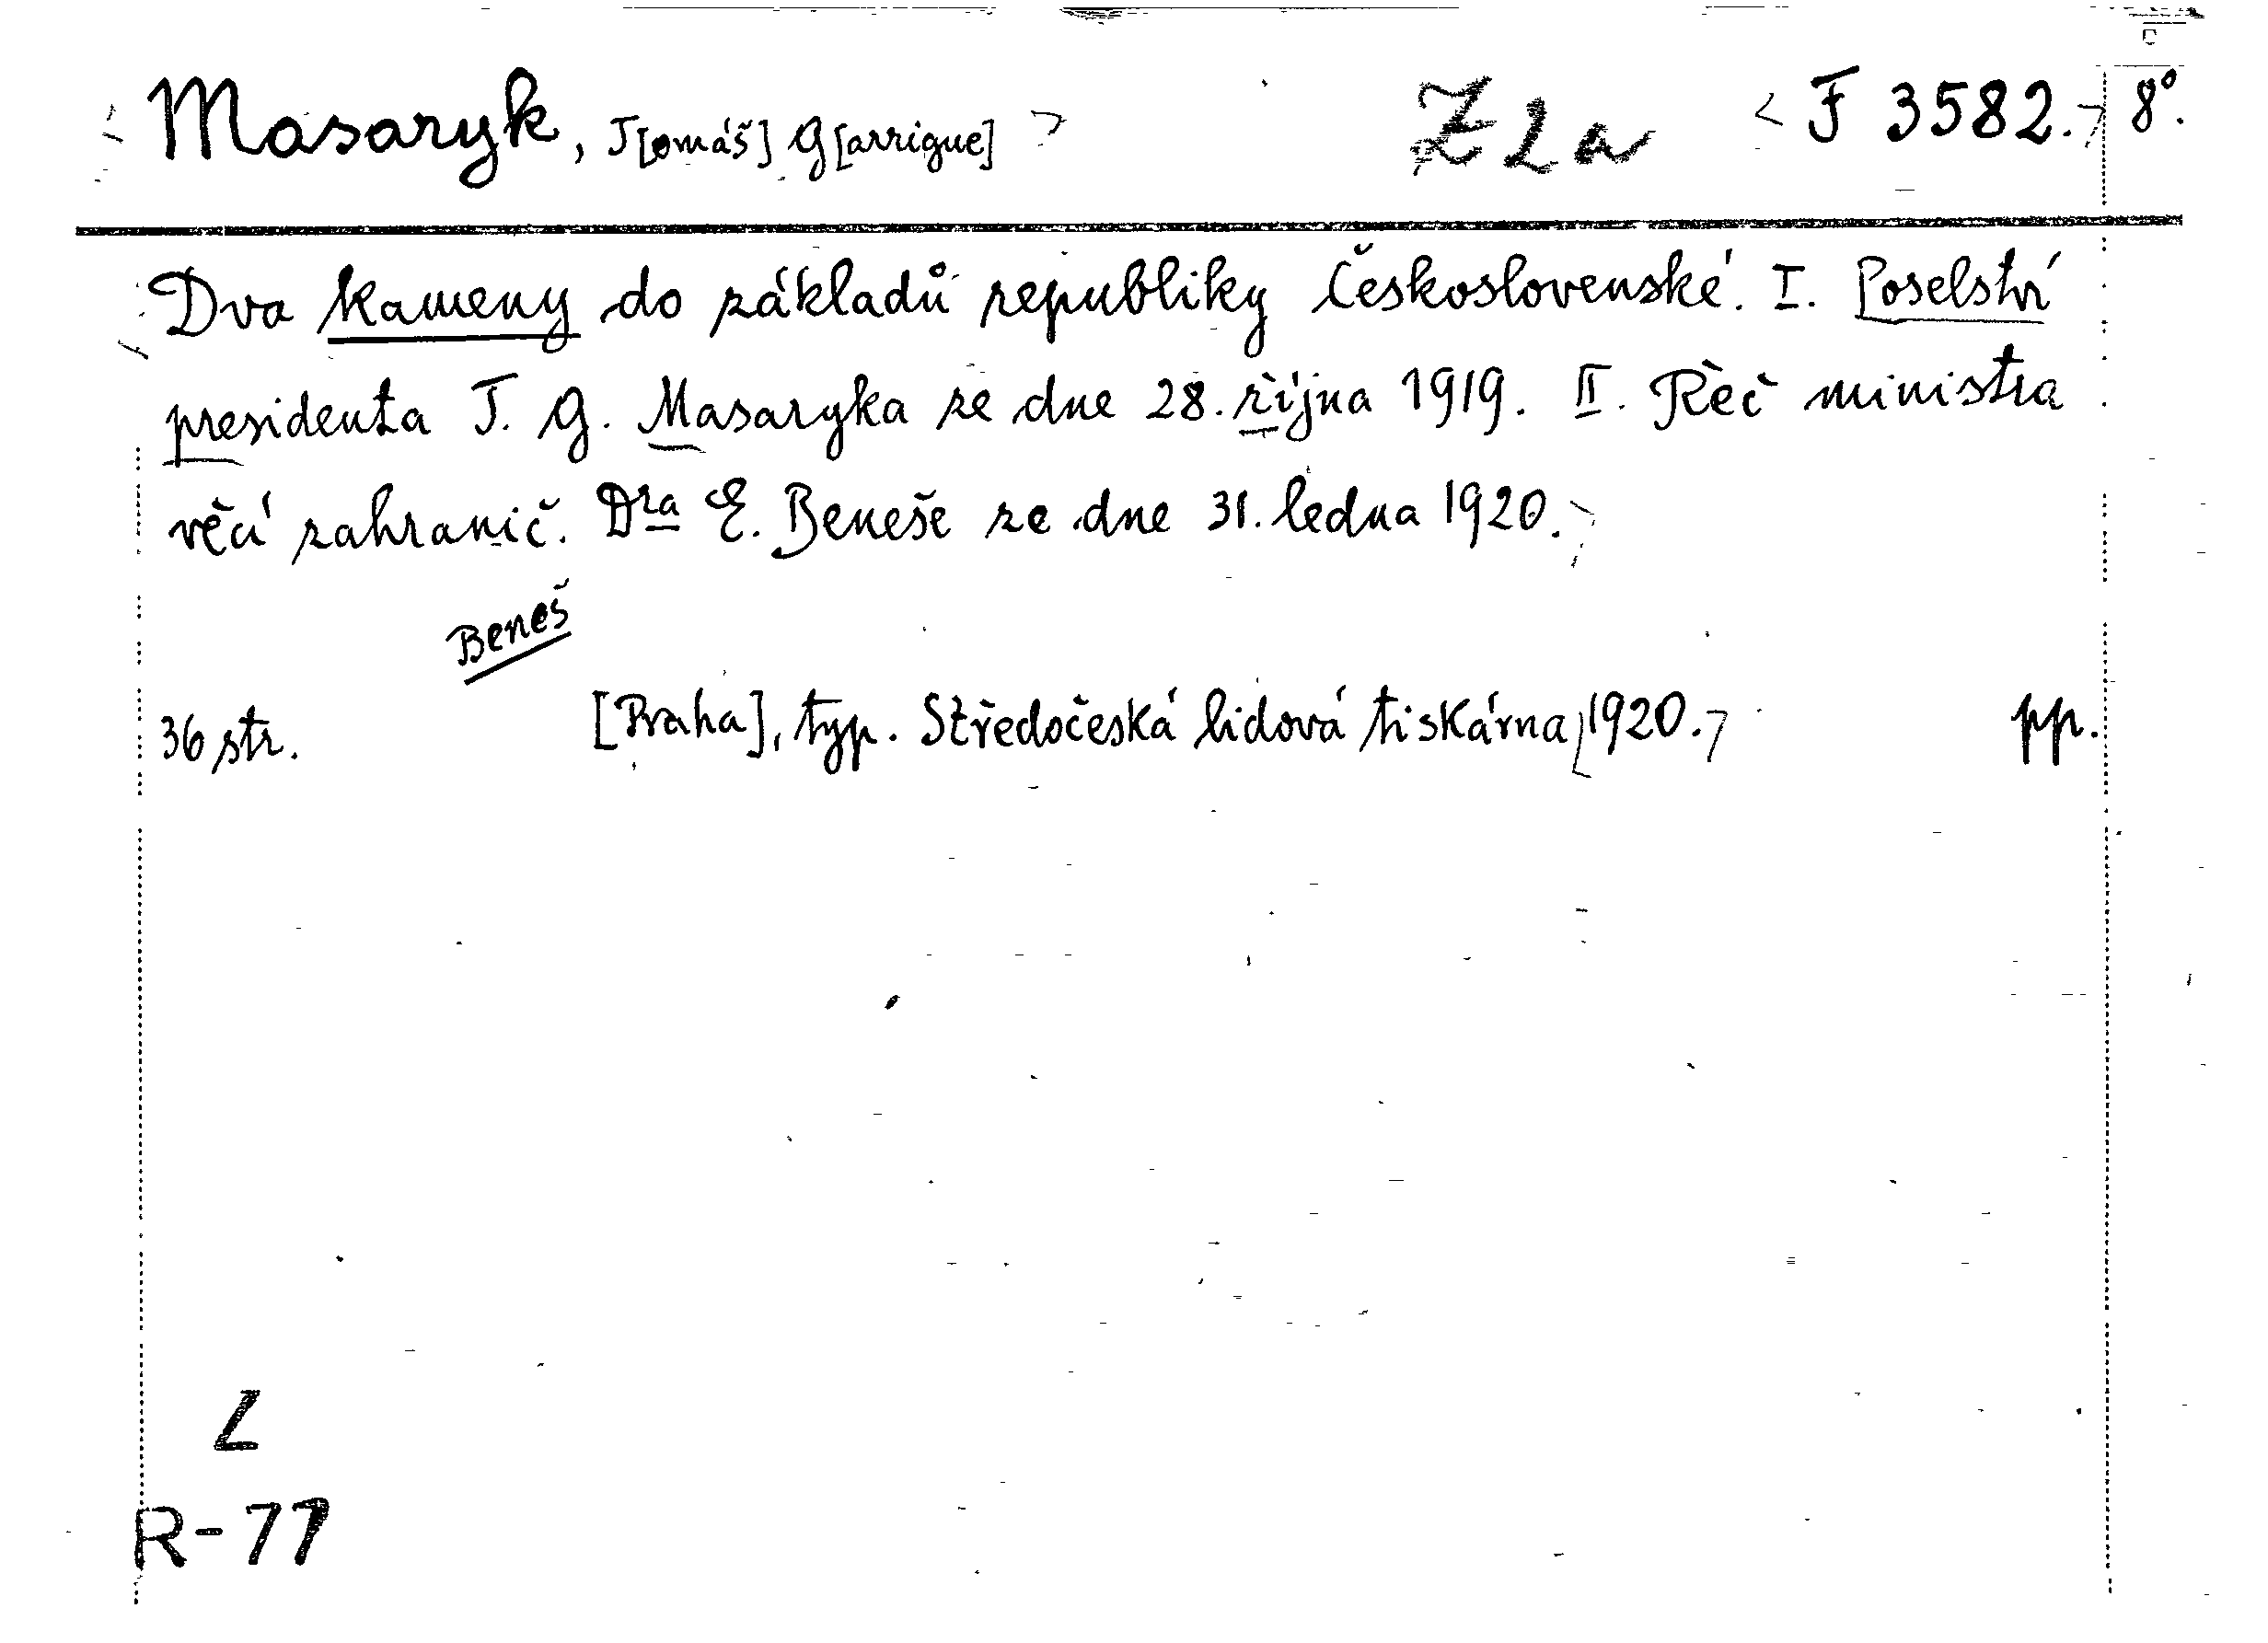 Masaryk, T[omáš] G[arrigue] Z2a F 3582. 8°.
Dva kameny do základů republiky Československé. I. Poselství
presidenta T. G. Masaryka ze dne 28. října 1919. II. Řeč ministra
věcí zahranič. Dra E. Beneše ze dne 31. ledna 1920.
Beneš
36 str. [Praha], typ. Středočeská lidová tiskárna 1920. pp.
L
R-77